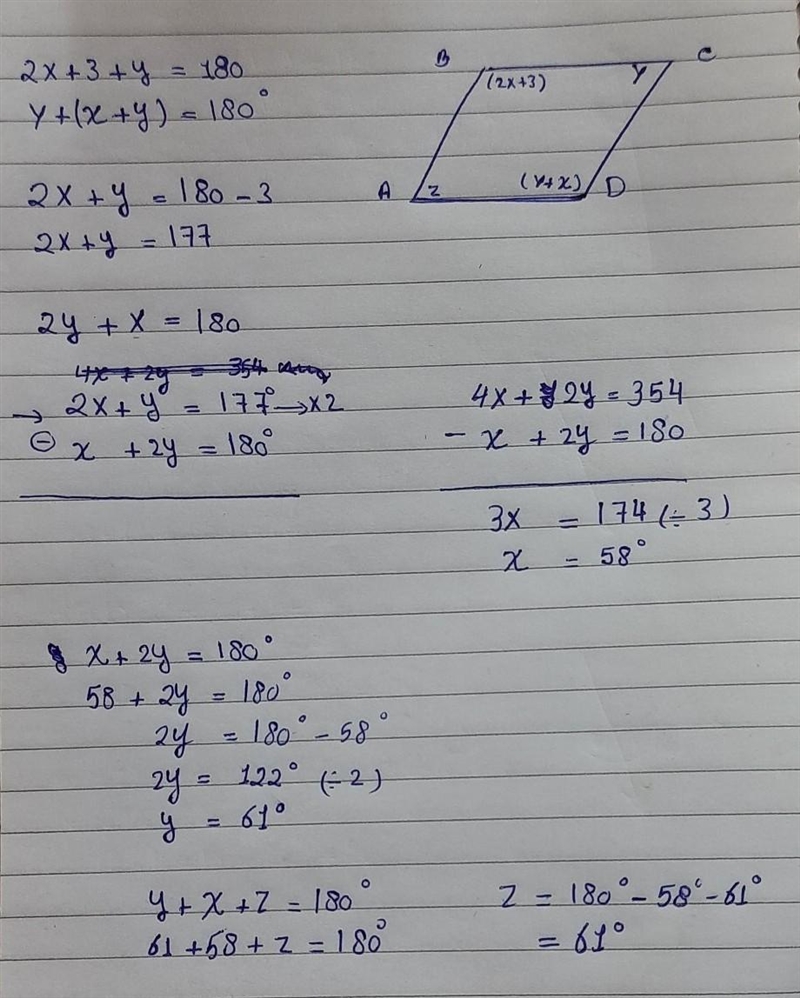 2x+3+y = 180
y+(x+y) = 180°
B
C
(2x+3)
y
A
z
(y+x)
D
2x+y = 180-3
2x+y = 177
2y + x = 180
4x + 2y = 354
→ 2x+y = 177° → x2
⊖ x + 2y = 180°
4x + 2y = 354
- x + 2y = 180
3x = 174 (÷3)
x = 58°
x + 2y = 180°
58 + 2y = 180°
2y = 180° - 58°
2y = 122° (÷2)
y = 61°
y + x + z = 180°
61 + 58 + z = 180°
z = 180° - 58° - 61°
= 61°